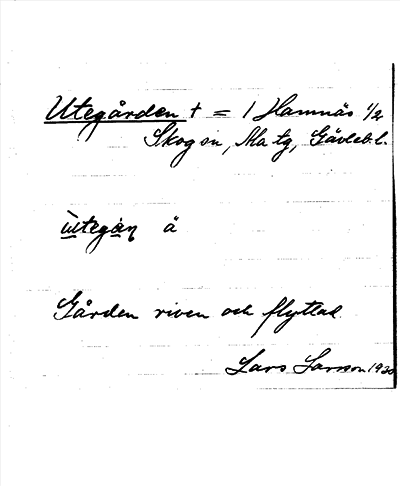 Utegården † = 1 Hamnäs 1/2
Skog sn, Ala tg, Gävlebl.
ùtegàn̥ å
Gården riven och flyttad.
Lars Larsson 1930